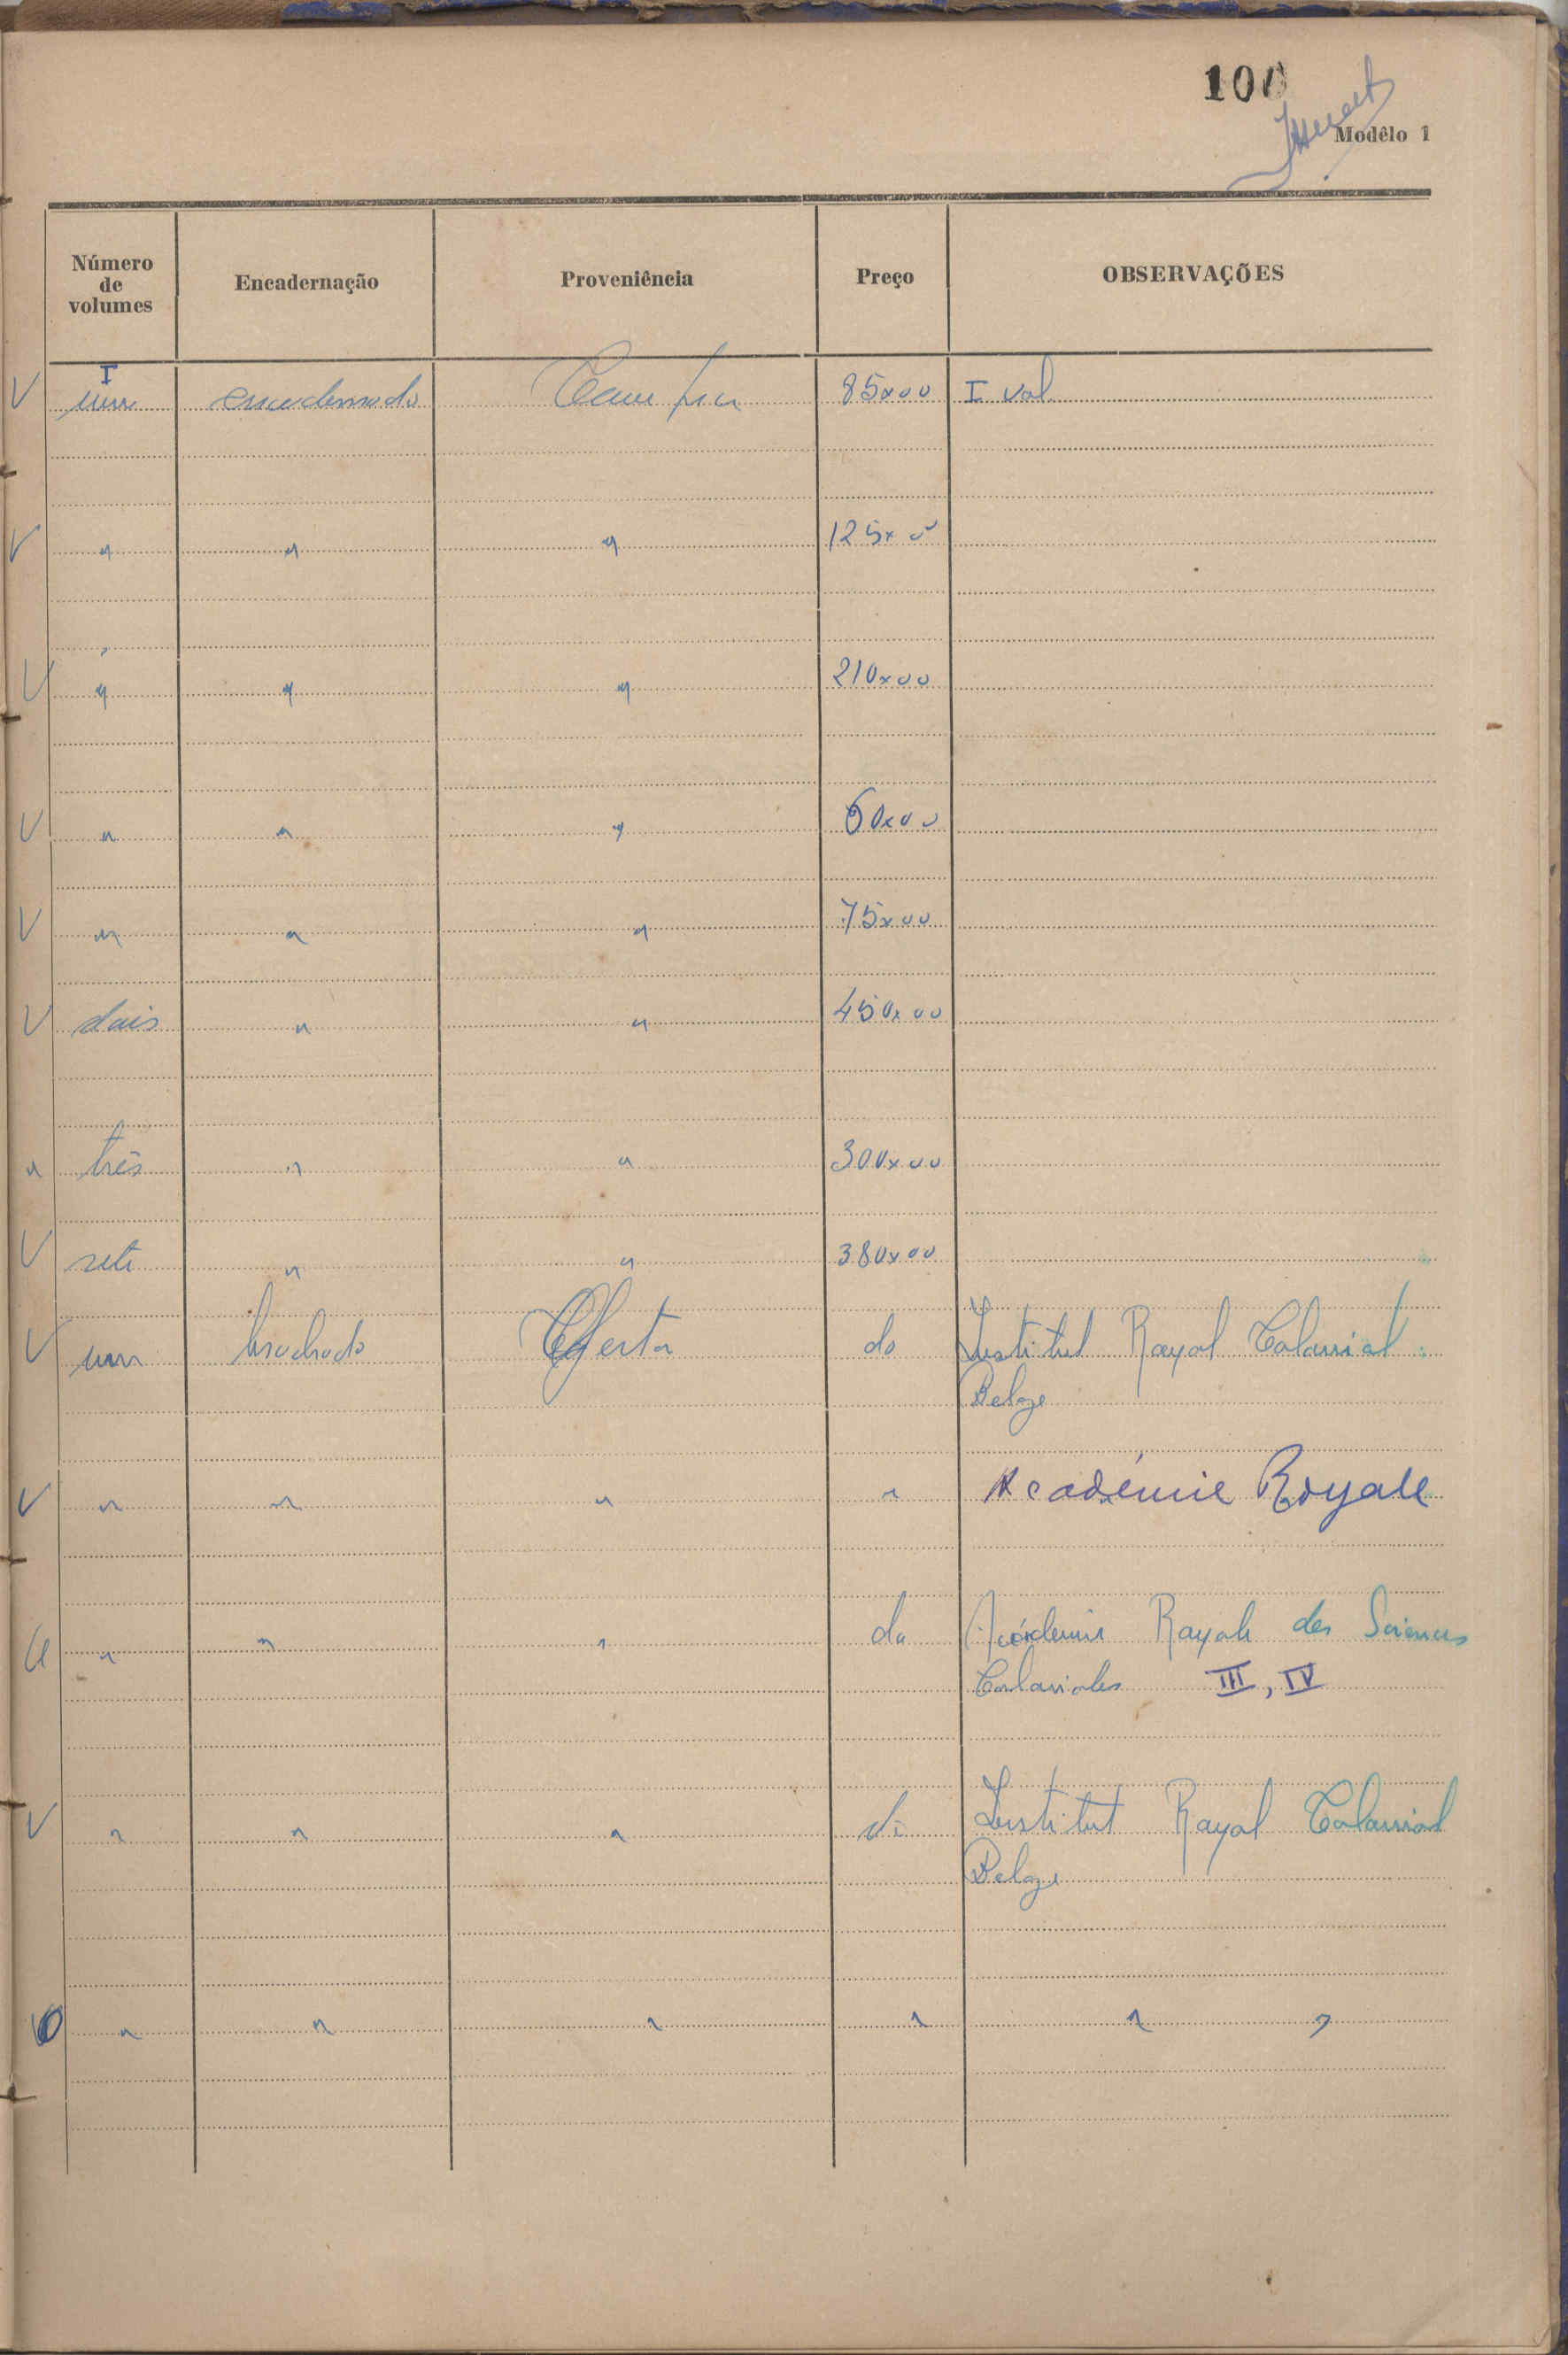 100
Modêlo 1
Número de volumes Encadernação Proveniência Preço OBSERVAÇÕES
I
V um encadernado Compra 85x00 I vol.
V " " " 125x00
V " " " 210x00
V " " " 60x00
V " " " 75x00
V dois " " 450x00
" três " " 300x00
V sete " " 380x00
V um brochado Oferta do Institut Royal Colonial
Belge
V " " " " Académie Royale
" " " da Académie Royale des Sciences
Coloniales III, IV
V " " " do Institut Royal Colonial
Belge
" " " " " "